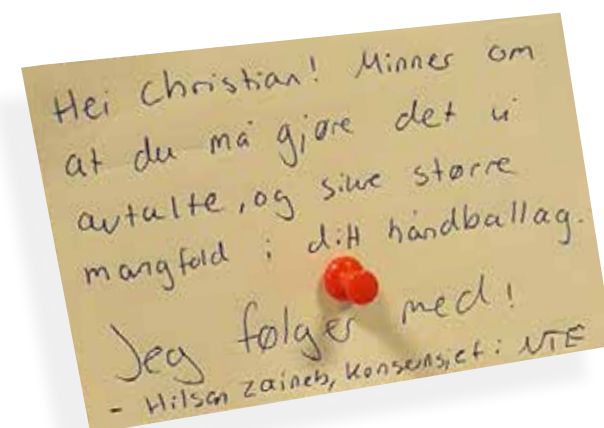 Hei Christian! Minner om
at du må gjøre det vi
avtalte, og sikre større
mangfold i ditt håndballag.
Jeg følger med!
- Hilsen Zaineb, konsernsjef i NTE